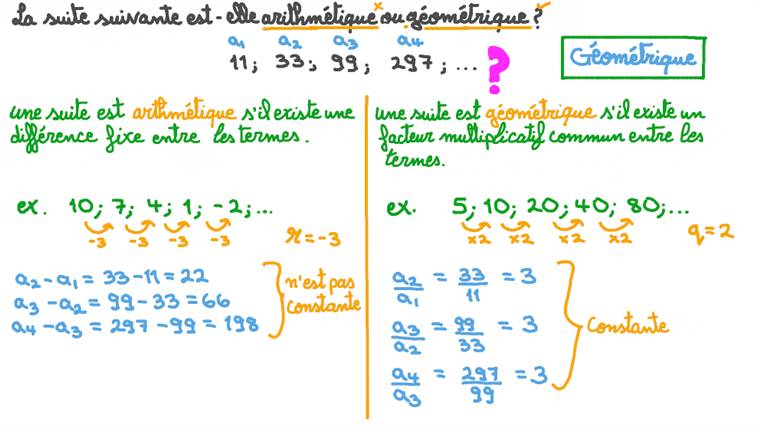 La suite suivante est-elle arithmétique ou géométrique ?
a1 a2 a3 a4
11; 33; 99; 297; ... ?
Géométrique
une suite est arthmétique s'il existe une
différence fixe entre les termes.
ex. 10; 7; 4; 1; -2; ...
-3 -3 -3 -3
r = -3
a2 - a1 = 33 - 11 = 22
a3 - a2 = 99 - 33 = 66
a4 - a3 = 297 - 99 = 198
n'est pas
constante
une suite est géométrique s'il existe un
facteur multiplicatif commun entre les
termes.
ex. 5; 10; 20; 40; 80; ...
x2 x2 x2 x2
q = 2
a2/a1 = 33/11 = 3
a3/a2 = 99/33 = 3
a4/a3 = 297/99 = 3
Constante